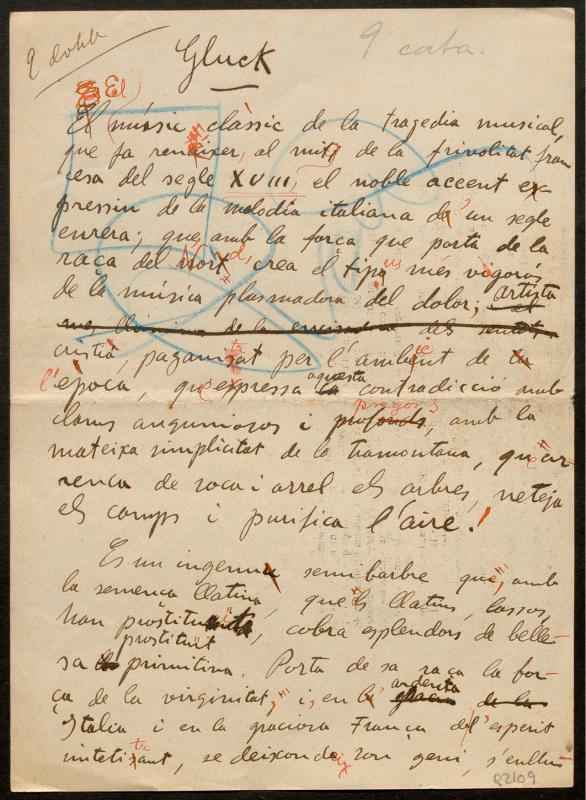 9 dobla
9 cata.
Gluck
El
El músic clàssic de la tragedia musical,
que fa renéixer, al mitj de la frivolitat fran
cesa del segle XVIII, el noble accent ex
pressiu de la melodia italiana de un segle
enrera; que, amb la força que porta de la
raça del Nort, crea el tipus més vigoros
de la música plasmadora del dolor; artista
cristià, paganisat per l'ambient de la
l'època, que expressa aquesta contradicció amb
clams anguniosos i pregons, amb la
mateixa simplicitat de la tramontana, que ar
renca de roca i arrel els arbres, neteja
els camps i purifica l'aire!
Es un ingenu semi barbre que, amb
la semença llatina, que els llatins, lassos,
han prostituit
prostituit, cobra esplendors de belle-
sa primitiva. Porta de sa raça la for-
ça de la virginitat, i, en l'ardenta
Italia i en la graciosa França de l'esperit
sintetisant, se deixonde ix son geni, s'enllu-
R2109